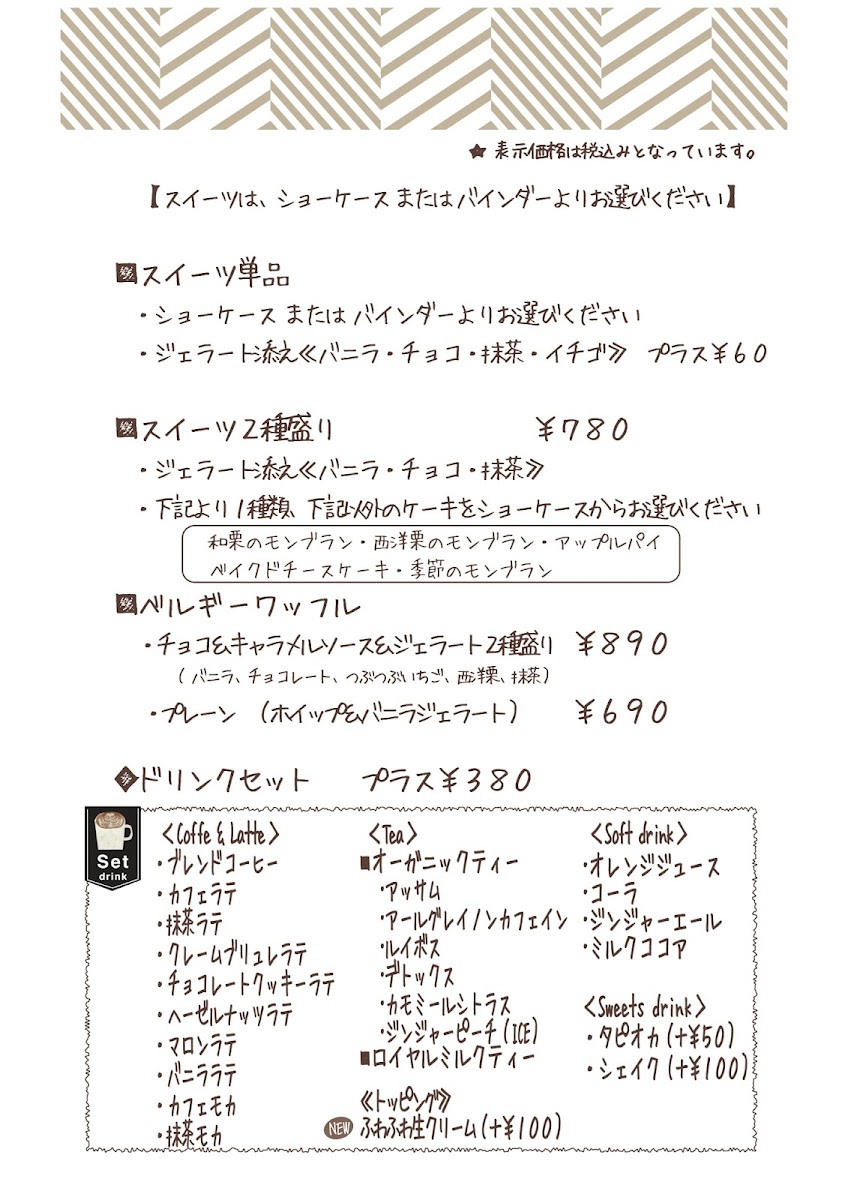 ★ 表示価格は税込みとなっています。
【スイーツは、ショーケース または バインダーよりお選びください】
スイーツ単品
・ショーケース または バインダーよりお選びください
・ジェラート添え≪バニラ・チョコ・抹茶・イチゴ≫ プラス¥60
スイーツ2種盛り ¥780
・ジェラート添え≪バニラ・チョコ・抹茶≫
・下記より1種類、下記以外のケーキをショーケースからお選びください
和栗のモンブラン・西洋栗のモンブラン・アップルパイ
ベイクドチーズケーキ・季節のモンブラン
ベルギーワッフル
・チョコ&キャラメルソース&ジェラート2種盛り ¥890
(バニラ、チョコレート、つぶつぶいちご、西洋栗、抹茶)
・プレーン (ホイップ&バニラジェラート) ¥690
ドリンクセット プラス¥380
Set
drink
<Coffe & Latte>
・ブレンドコーヒー
・カフェラテ
・抹茶ラテ
・クレームブリュレラテ
・チョコレートクッキーラテ
・ヘーゼルナッツラテ
・マロンラテ
・バニララテ
・カフェモカ
・抹茶モカ
<Tea>
■オーガニックティー
・アッサム
・アールグレイ/ノンカフェイン
・ルイボス
・デトックス
・カモミールシトラス
・ジンジャーピーチ(ICE)
■ロイヤルミルクティー
≪トッピング≫
NEW ふわふわ生クリーム(+¥100)
<Soft drink>
・オレンジジュース
・コーラ
・ジンジャーエール
・ミルクココア
<Sweets drink>
・タピオカ(+¥50)
・シェイク(+¥100)